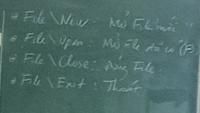 * File\New: Mở File mới
* File\Open: Mở File đã có (F3)
* File\Close: Đóng File
* File\Exit: Thoát